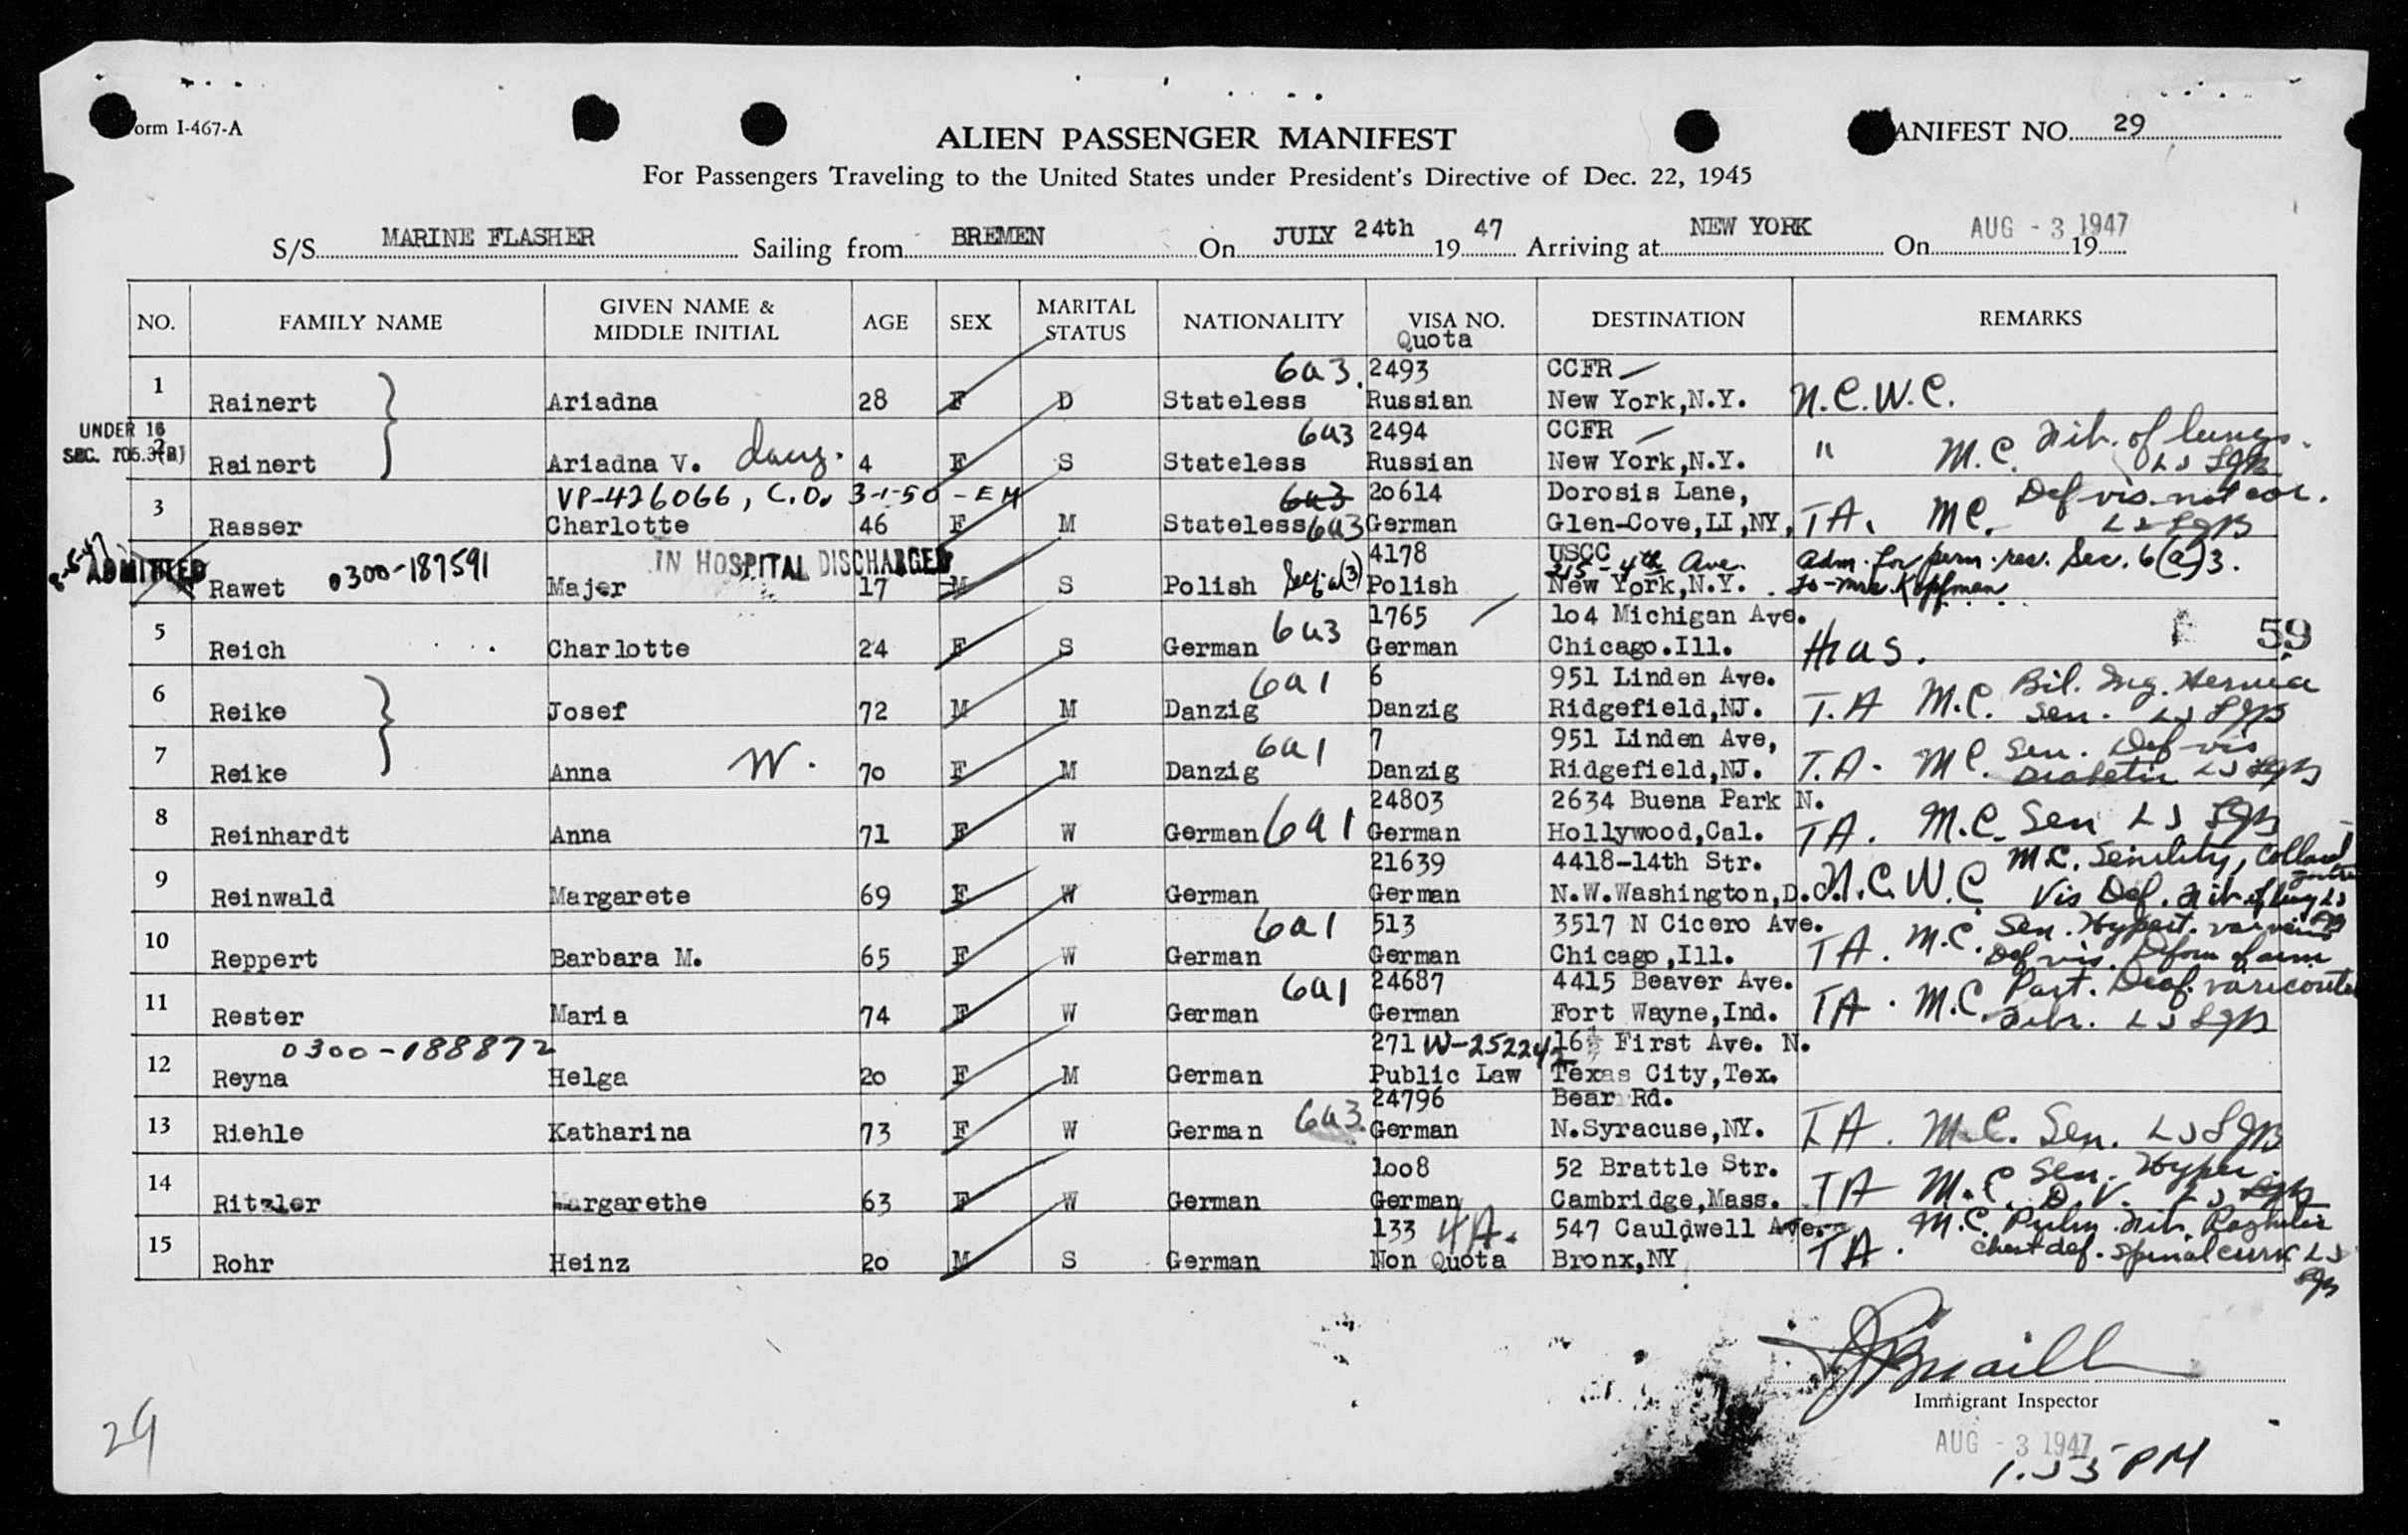 Form I-467-A
ALIEN PASSENGER MANIFEST
MANIFEST NO. 29
For Passengers Traveling to the United States under President's Directive of Dec. 22, 1945
S/S MARINE FLASHER Sailing from BREMEN On JULY 24th 19 47 Arriving at NEW YORK On AUG - 3 1947 19
NO. FAMILY NAME GIVEN NAME & MIDDLE INITIAL AGE SEX MARITAL STATUS NATIONALITY VISA NO. Quota DESTINATION REMARKS
6a3. 2493 CCFR
1 Rainert Ariadna 28 F D Stateless Russian New York,N.Y. N.C.W.C.
UNDER 16 6a3 2494 CCFR
SEC. 105.3(B) 2 Rainert Ariadna V. daug. 4 F S Stateless Russian New York,N.Y. " M.C. of lungs.
VP-426066, C.O. 3-1-50 - EM 6a3 20614 Dorosis Lane, Def vis. not cor.
3 Rasser Charlotte 46 F M Stateless 6a3 German Glen-Cove,LI,NY, TA. MC.
8-5-47 ADMITTED IN HOSPITAL DISCHARGED 4178 USCC 315-4th Ave. adm. for perm. res. Sec. 6(a)3.
Rawet 0300-187591 Majer 17 M S Polish Sec 6a(3) Polish New York,N.Y. to - Mrs.
1765 104 Michigan Ave.
5 Reich Charlotte 24 F S German 6a3 German Chicago.Ill. Hias. 59
6a1 6 951 Linden Ave. Bil. Ing. Hernia
6 Reike Josef 72 M M Danzig Danzig Ridgefield,NJ. T.A M.C. Sen.
6a1 7 951 Linden Ave, Sen. Def vis
7 Reike Anna W. 70 F M Danzig Danzig Ridgefield,NJ. T.A. MC. Diabetic
24803 2634 Buena Park N.
8 Reinhardt Anna 71 F W German 6a1 German Hollywood,Cal. TA. M.C. Sen
21639 4418-14th Str. M.C. Senility,
9 Reinwald Margarete 69 F W German German N.W.Washington,D.C. N.C.W.C Vis Def.
6a1 513 3517 N Cicero Ave. Sen. Hypert.
10 Reppert Barbara M. 65 F W German German Chicago,Ill. TA. M.C. Def vis. Deform of arm
6a1 24687 4415 Beaver Ave. Part. Deaf.
11 Rester Maria 74 F W German German Fort Wayne,Ind. TA. M.C.
0300-188872 271 W-252242 16½ First Ave. N.
12 Reyna Helga 20 F M German Public Law Texas City,Tex.
24796 Bear Rd.
13 Riehle Katharina 73 F W German 6a3. German N.Syracuse,NY. TA. M.C. Sen.
1008 52 Brattle Str. Sen. Hyper.
14 Ritzler Margarethe 63 F W German German Cambridge,Mass. TA M.C. D.V.
133 4A. 547 Cauldwell Ave. M.C. Pulm.
15 Rohr Heinz 20 M S German Non Quota Bronx,NY TA. chest def. spinal curv
Immigrant Inspector
AUG - 3 1947
1.55 PM
29